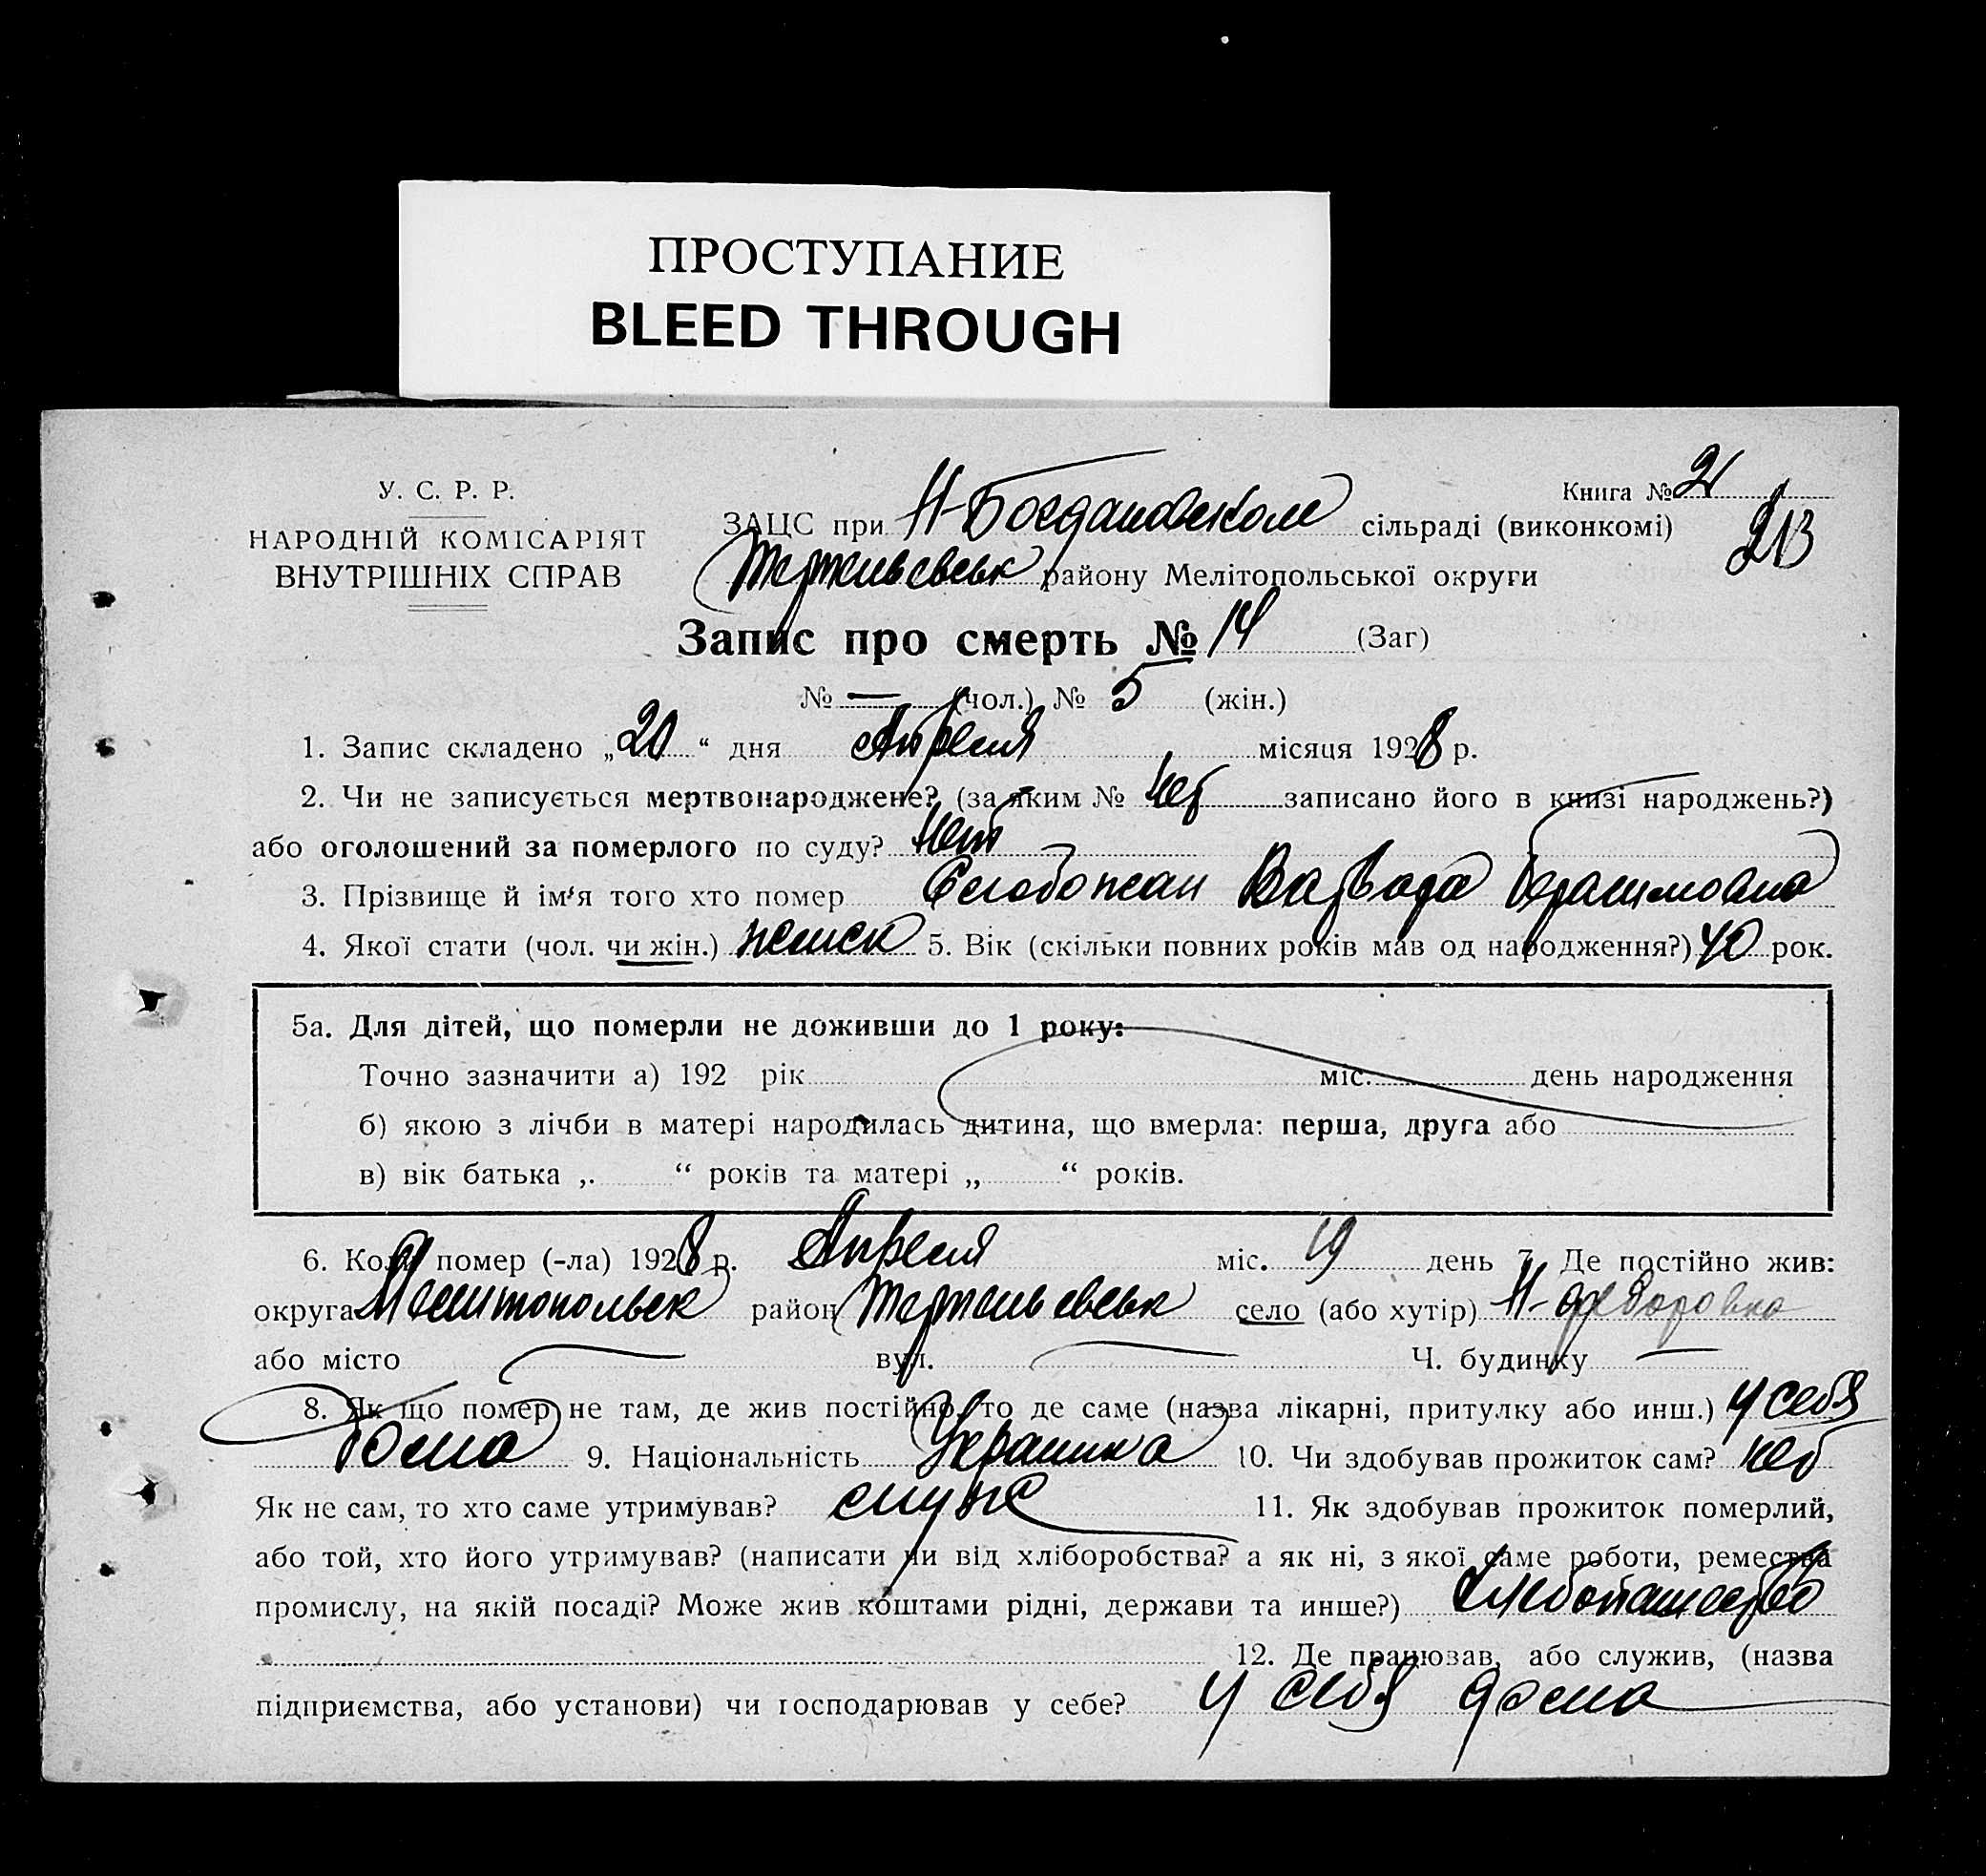 ПРОСТУПАНИЕ
BLEED THROUGH
У. С. Р. Р.
НАРОДНІЙ КОМІСАРІЯТ
ВНУТРІШНІХ СПРАВ
Книга № 21
213
ЗАЦС при Н-Богдановском сільраді (виконкомі)
району Мелітопольської округи
Запис про смерть № 14 (Заг)
№ — (чол.) № 5 (жін.)
1. Запис складено „20“ дня Апреля місяця 1928 р.
2. Чи не записується мертвонароджене? (за яким № нет записано його в книзі народжень?)
або оголошений за померлого по суду? нет
3. Прізвище й ім'я того хто помер Слобожан Варвара Герасимовна
4. Якої стати (чол. чи жін.) женск 5. Вік (скільки повних років мав од народження?) 40 рок.
5а. Для дітей, що померли не доживши до 1 року:
Точно зазначити а) 192 рік міс. день народження
б) якою з лічби в матері народилась дитина, що вмерла: перша, друга або
в) вік батька „ “ років та матері „ “ років.
6. Коли помер (-ла) 1928 р. Апреля міс. 19 день 7. Де постійно жив:
округа Мелитопольск район село (або хутір) Н-Федоровка
або місто — вул. — Ч. будинку —
8. Як що помер не там, де жив постійно, то де саме (назва лікарні, притулку або инш.) у себя
дома 9. Національність Украинка 10. Чи здобував прожиток сам? нет
Як не сам, то хто саме утримував? муж 11. Як здобував прожиток померлий,
або той, хто його утримував? (написати чи від хліборобства? а як ні, з якої саме роботи, ремества
промислу, на якій посаді? Може жив коштами рідні, держави та инше?) хлебопашество
12. Де працював, або служив, (назва
підприємства, або установи) чи господарював у себе? у себя дома